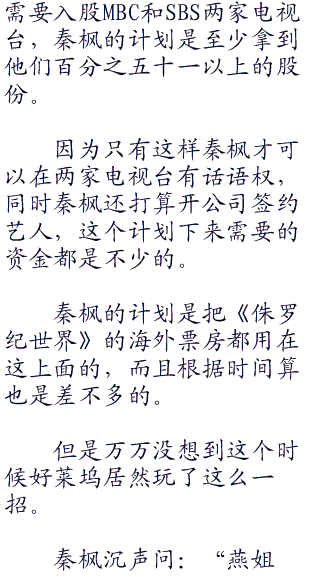 需要入股MBC和SBS两家电视
台，秦枫的计划是至少拿到
他们百分之五十一以上的股
份。
因为只有这样秦枫才可
以在两家电视台有话语权，
同时秦枫还打算开公司签约
艺人，这个计划下来需要的
资金都是不少的。
秦枫的计划是把《侏罗
纪世界》的海外票房都用在
这上面的，而且根据时间算
也是差不多的。
但是万万没想到这个时
候好莱坞居然玩了这么一
招。
秦枫沉声问：“燕姐